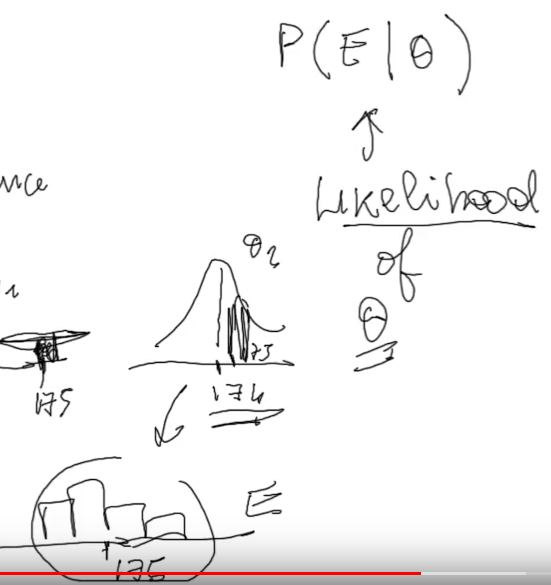 P(E|θ)
Likelihood
of
θ
θ₂
175
174
E
175